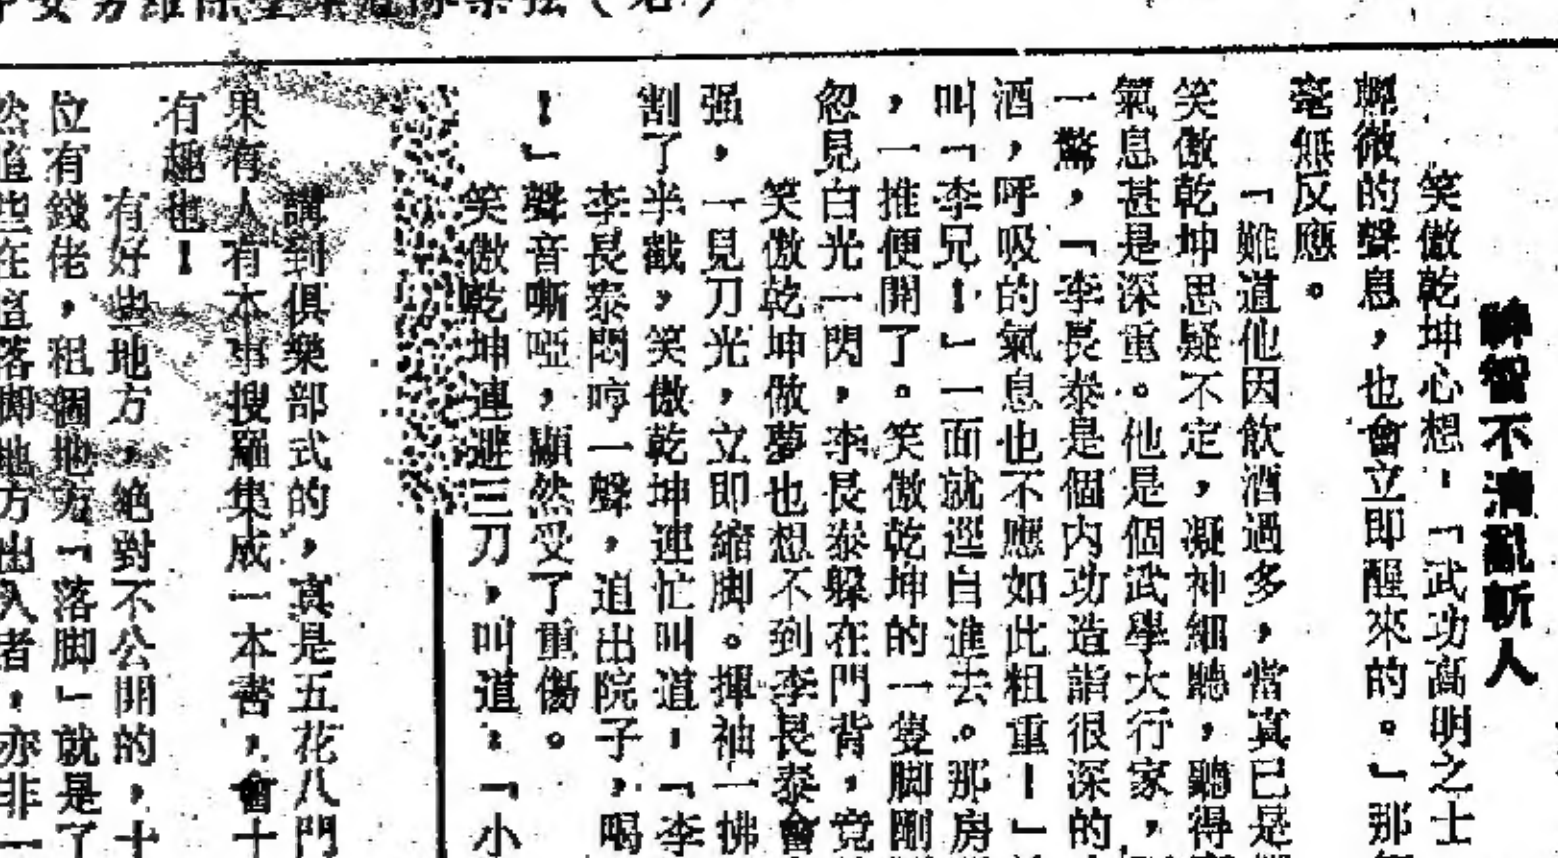 神智不清亂斬人
笑傲乾坤心想：「武功高明之士
輕微的聲息，也會立即醒來的。」那
毫無反應。
「難道他因飲酒過多，當真已是
笑傲乾坤思疑不定，凝神細聽，聽得
氣息甚是深重。他是個武學大行家，
一驚，「李長泰是個內功造詣很深的
酒，呼吸的氣息也不應如此粗重！」
叫「李兄！」一面就逕自進去。那房
，一推便開了。笑傲乾坤的一隻脚剛
忽見白光一閃，李長泰躲在門背，竟
笑傲乾坤做夢也想不到李長泰會
强，一見刀光，立即縮脚。揮袖一拂
割了半截，笑傲乾坤連忙叫道：「李
李長泰悶哼一聲，追出院子，喝
！」聲音嘶啞，顯然受了重傷。
笑傲乾坤連避三刀，叫道：「小
講到俱樂部式的，真是五花八門
果有人有本事搜羅集成一本書，會十
有趣也！
有好些地方，絕對不公開的，十
位有錢佬，租個地方「落脚」就是了
然這些在這落脚地方出入者，亦非一